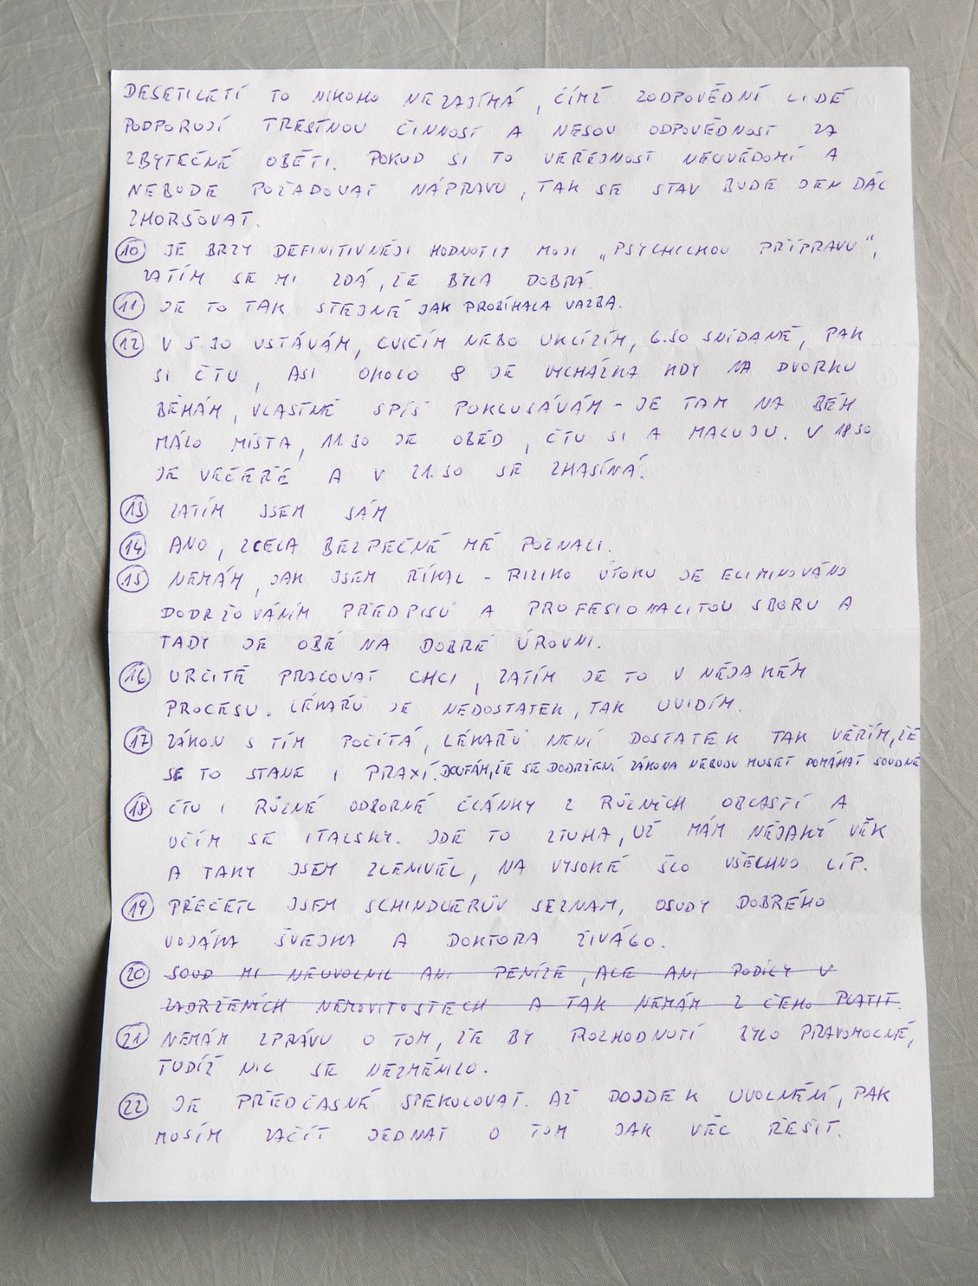 DESETILETÍ TO NIKOHO NEZAJÍMÁ, ČÍMŽ ZODPOVĚDNÍ LIDÉ
PODPORUJÍ TRESTNOU ČINNOST A NESOU ODPOVĚDNOST ZA
ZBYTEČNÉ OBĚTI. POKUD SI TO VEŘEJNOST NEUVĚDOMÍ A
NEBUDE POŽADOVAT NÁPRAVU, TAK SE STAV BUDE JEN DÁL
ZHORŠOVAT.
10 JE BRZY DEFINITIVNĚJI HODNOTIT MOJI „PSYCHICKOU PŘÍPRAVU",
ZATÍM SE MI ZDÁ, ŽE BYLA DOBRÁ.
11 JE TO TAK STEJNÉ JAK PROBÍHALA VAZBA.
12 V 5.30 VSTÁVÁM, CVIČÍM NEBO UKLÍZÍM, 6.30 SNÍDANĚ, PAK
SI ČTU, ASI OKOLO 8 JE VYCHÁZKA KDY NA DVORKU
BĚHÁM, VLASTNĚ SPÍŠ POKLUSÁVÁM - JE TAM NA BĚH
MÁLO MÍSTA, 11.30 JE OBĚD, ČTU SI A MALUJU. V 18.30
JE VEČEŘE A V 21.30 SE ZHASÍNÁ.
13 ZATÍM JSEM SÁM
14 ANO, ZCELA BEZPEČNĚ MĚ POZNALI.
15 NEMÁM, JAK JSEM ŘÍKAL - RIZIKO ÚTOKU JE ELIMINOVÁNO
DODRŽOVÁNÍM PŘEDPISŮ A PROFESIONALITOU SBORU A
TADY JE OBĚ NA DOBRÉ ÚROVNI.
16 URČITĚ PRACOVAT CHCI, ZATÍM JE TO V NĚJAKÉM
PROCESU. LÉKAŘŮ JE NEDOSTATEK, TAK UVIDÍM.
17 ZÁKON S TÍM POČÍTÁ, LÉKAŘŮ NENÍ DOSTATEK TAK VĚŘÍM, ŽE
SE TO STANE I PRAXÍ. DOUFÁM, ŽE SE DODRŽENÍ ZÁKONA NEBUDU MUSET DOMÁHAT SOUDNĚ
18 ČTU I RŮZNÉ ODBORNÉ ČLÁNKY Z RŮZNÝCH OBLASTÍ A
UČÍM SE ITALSKY. JDE TO ZTUHA, UŽ MÁM NĚJAKÝ VĚK
A TAKY JSEM ZLENIVĚL, NA VYSOKÉ ŠLO VŠECHNO LÍP.
19 PŘEČETL JSEM SCHINDLERŮV SEZNAM, OSUDY DOBRÉHO
VOJÁKA ŠVEJKA A DOKTORA ŽIVÁGO.
20 SOUD MI NEUVOLNIL ANI PENÍZE, ALE ANI PODÍLY V
ZADRŽENÝCH NEMOVITOSTECH A TAK NEMÁM Z ČEHO PLATIT.
21 NEMÁM ZPRÁVU O TOM, ŽE BY ROZHODNUTÍ BYLO PRAVOMOCNÉ,
TUDÍŽ NIC SE NEZMĚNILO.
22 JE PŘEDČASNÉ SPEKULOVAT. AŽ DOJDE K UVOLNĚNÍ, PAK
MUSÍM ZAČÍT JEDNAT O TOM JAK VĚC ŘEŠIT.